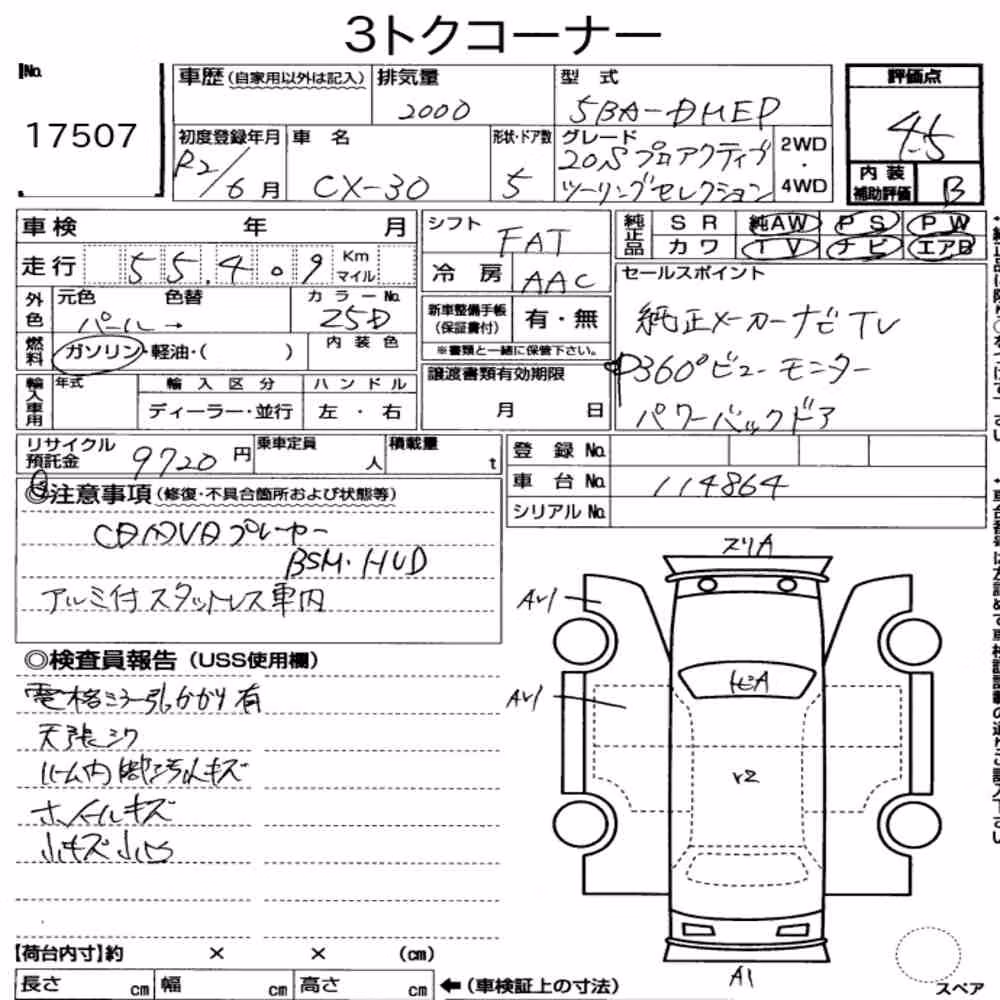 3トクコーナー
No.
17507
車歴(自家用以外は記入)
排気量
2000
型 式
5BA-DMEP
評価点
4.5
内装補助評価
B
初度登録年月
R2/6月
車 名
CX-30
形状・ドア数
5
グレード
20S プロアクティブ
ツーリングセレクション
2WD
・
4WD
車検 年 月
走行 55.4.9 Km マイル
シフト
FAT
冷 房
AAC
純正品
SR 純AW PS PW
カワ TV ナビ エアB
外色
元色 色替
パール→
カラーNo.
25D
新車整備手帳
(保証書付)
有・無
※書類と一緒に保管下さい。
燃料
ガソリン・軽油・( )
内装色
セールスポイント
純正メーカーナビTV
360°ビューモニター
パワーバックドア
輸入車用
年式
輸入区分
ディーラー・並行
ハンドル
左・右
譲渡書類有効期限
月 日
リサイクル預託金
9720円
乗車定員
人
積載量
t
登 録 No.
車 台 No.
114864
シリアル No.
◎注意事項(修復・不具合箇所および状態等)
CD DVDプレーヤー
BSM・HUD
アルミ付スタットレス車内
◎検査員報告(USS使用欄)
電格ミラー引っかかり有
天張シワ
ルーム内部汚れキズ
ホイールキズ
小キズ小凹
スリA
AU1
AU1
トビA
Y2
A1
【荷台内寸】約 × × (cm)
長さ cm 幅 cm 高さ cm
←(車検証上の寸法)
スペア